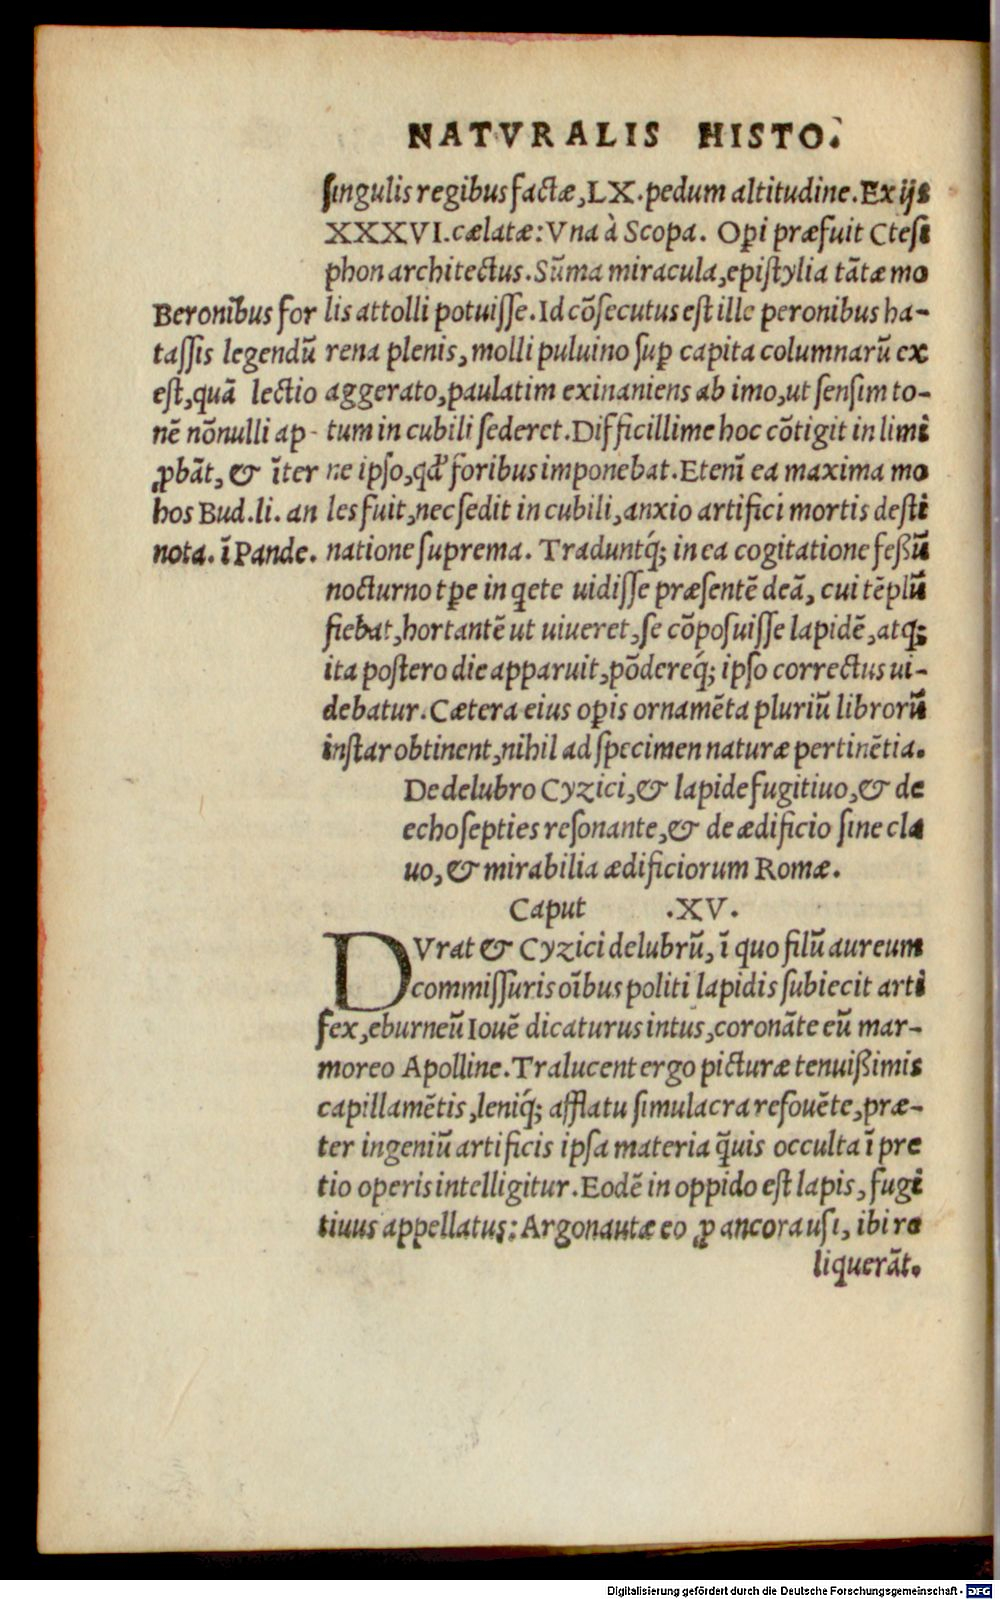 NATVRALIS HISTO.
singulis regibus factæ, LX. pedum altitudine. Ex ijs
XXXVI. cælatæ: Vna à Scopa. Operi præfuit Ctesi
phon architectus. Sũma miracula, epistylia tãtæ mo
lis attolli potuisse. Id cõsecutus est ille peronibus ha-
rena plenis, molli puluino suꝑ capita columnarũ ex
aggerato, paulatim exinaniens ab imo, ut sensim to-
tum in cubili sederet. Difficillime hoc cõtigit in limi
ne ipso, qđ foribus imponebat. Etenĩ ea maxima mo
les fuit, nec sedit in cubili, anxio artifici mortis desti
natione suprema. Traduntq́; in ea cogitatione feßũ
nocturno tꝑe in qete uidisse præsentẽ deã, cui tẽplũ
fiebat, hortantẽ ut uiueret, se cõposuisse lapidẽ, atq;
ita postero die apparuit, põdereq́; ipso correctus ui-
debatur. Cætera eius oꝑis ornamẽta pluriũ librorũ
instar obtinent, nihil ad specimen naturæ pertinẽtia.
Beronĩbus for
tassis legendũ
est, quã lectio
nẽ nõnulli ap-
ꝓbãt, & ĩter
hos Bud. li. an
nota. ĩ Pande.
De delubro Cyzici, & lapide fugitiuo, & de
echo septies resonante, & de ædificio sine cla
uo, & mirabilia ædificiorum Romæ.
Caput .XV.
DVrat & Cyzici delubrũ, ĩ quo filũ aureum
commissuris oĩbus politi lapidis subiecit arti
fex, eburneũ Iouẽ dicaturus intus, coronãte eũ mar-
moreo Apolline. Tralucent ergo picturæ tenuißimis
capillamẽtis, leniq́; afflatu simulacra refouẽte, præ-
ter ingeniũ artificis ipsa materia q̃uis occulta ĩ pre
tio operis intelligitur. Eodẽ in oppido est lapis, fugi
tiuus appellatus: Argonautæ eo ꝓ ancora usi, ibi re
liquerãt.
Digitalisierung gefördert durch die Deutsche Forschungsgemeinschaft - DFG